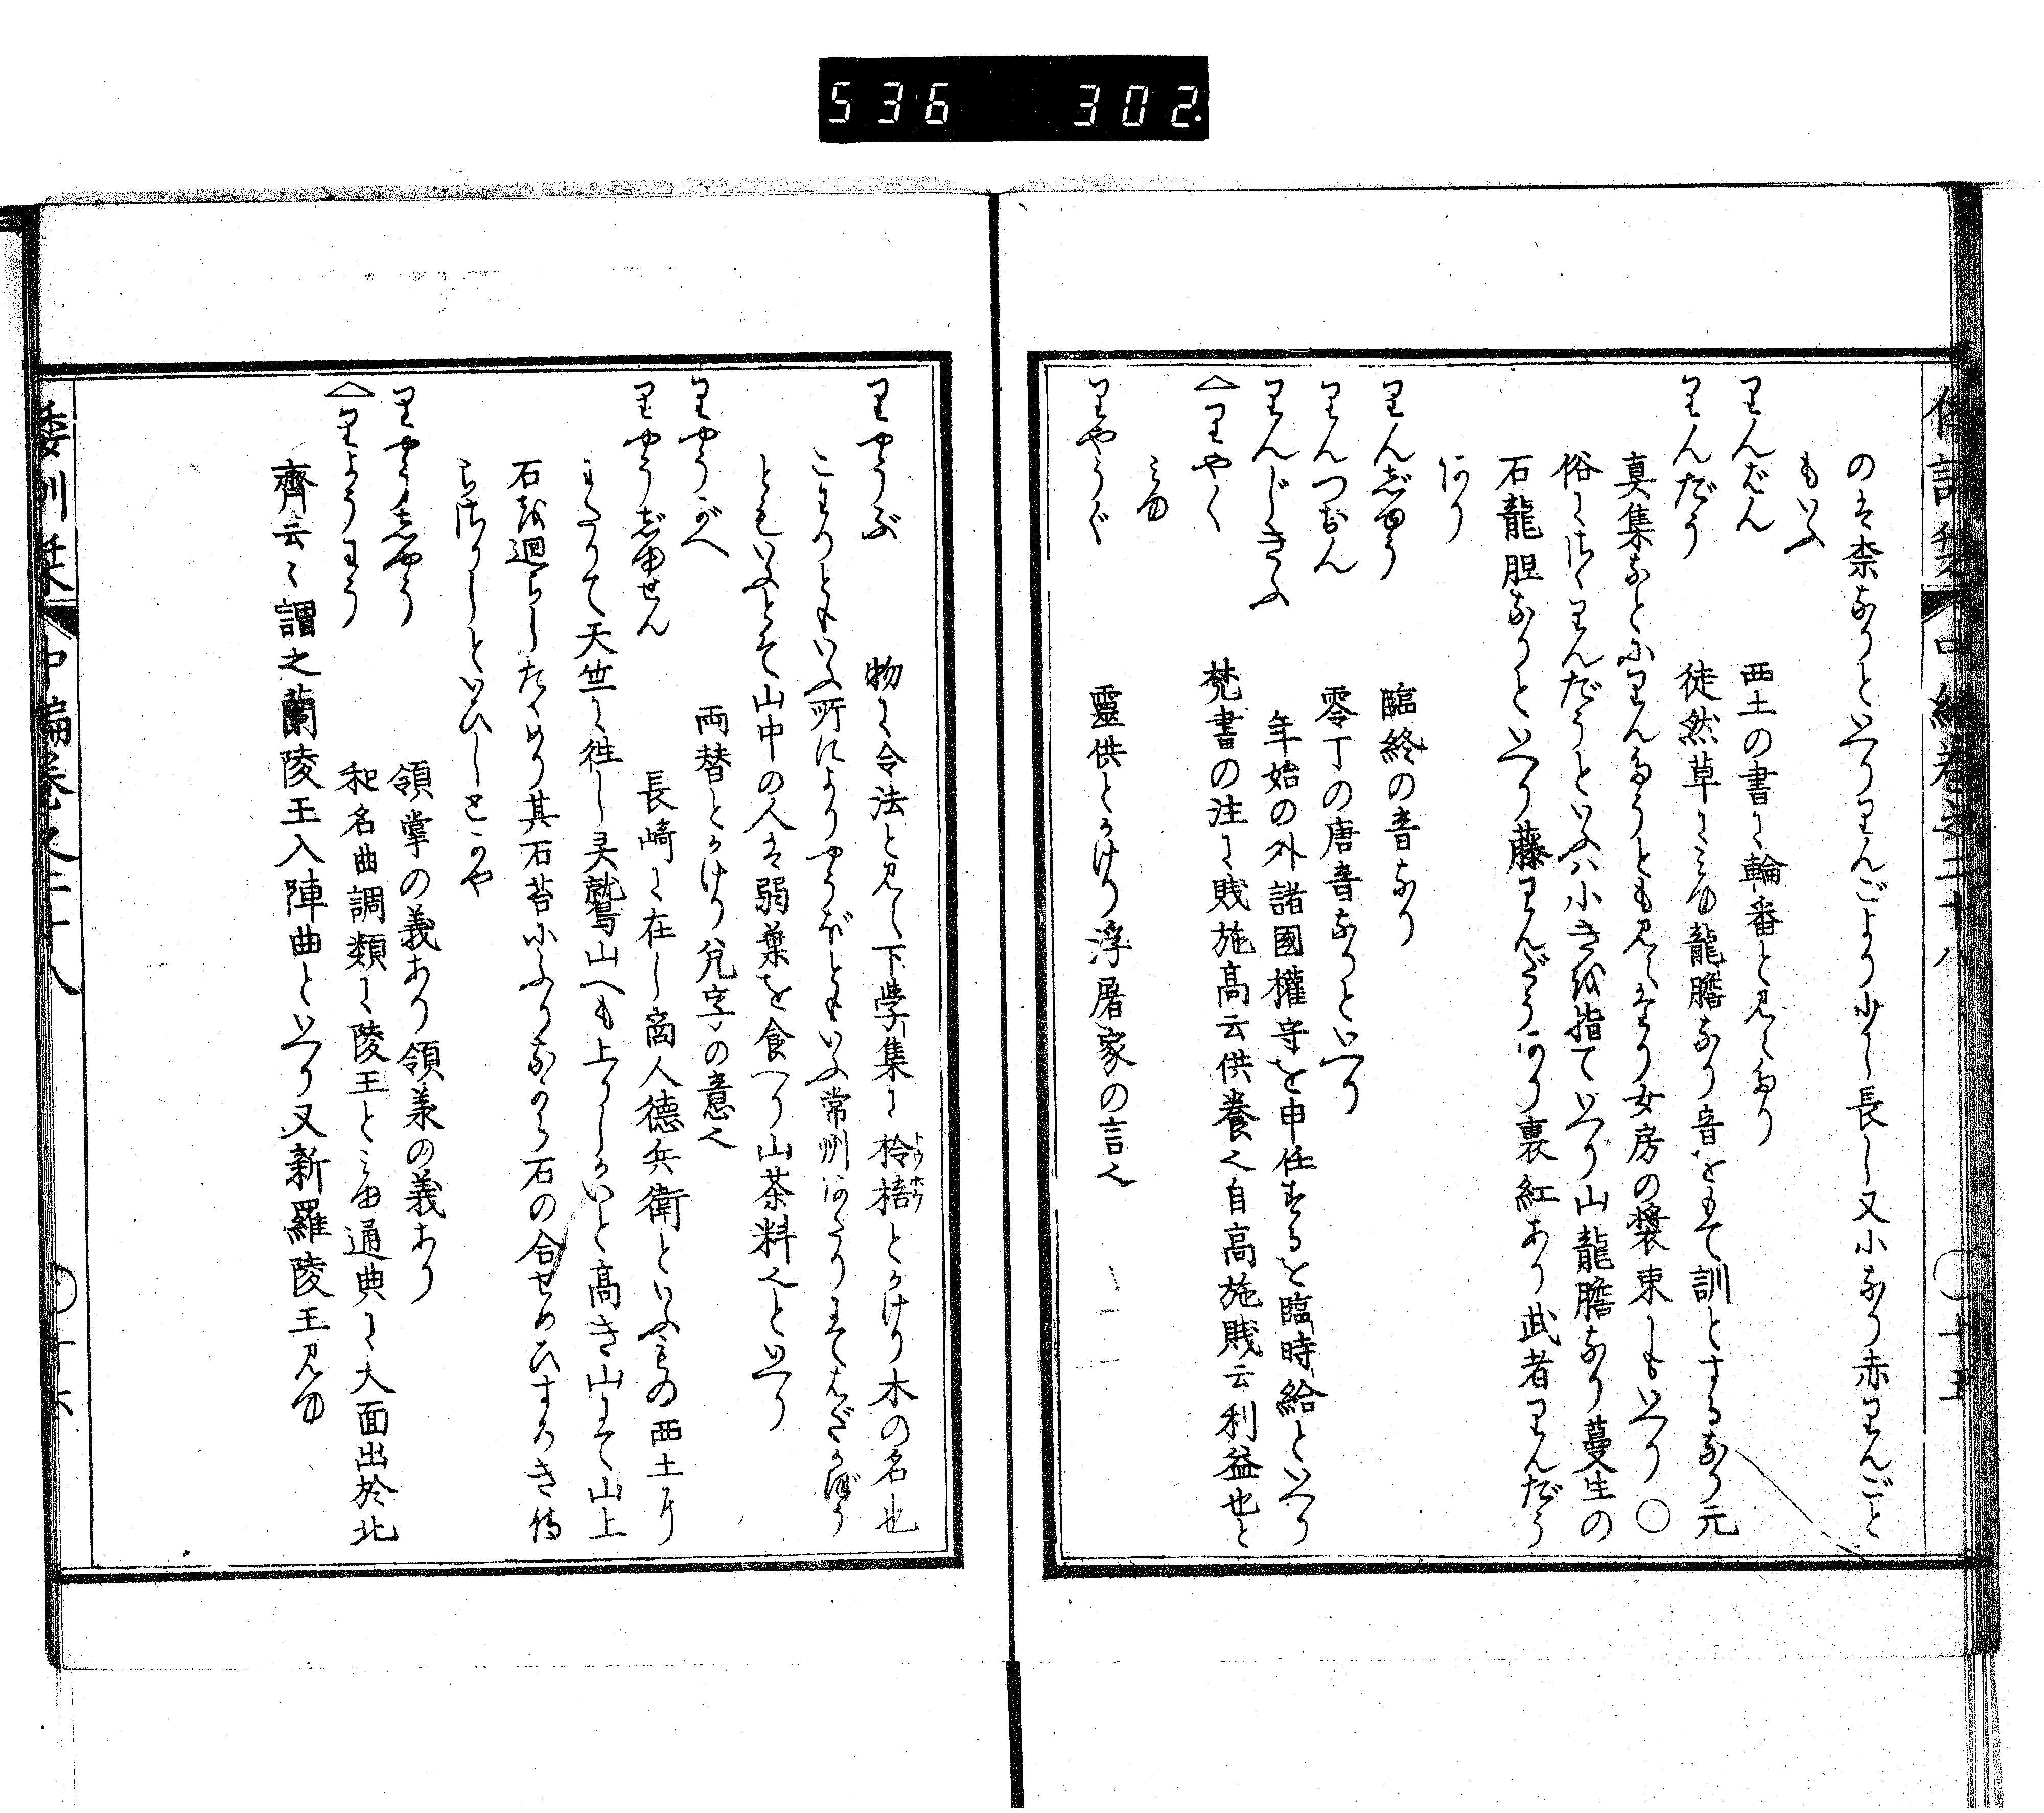 536 302.
のは柰なりといへりりんごより少し長し又小なり赤りんごと
もいふ
りんばん 西土の書に輪番と見えたり
りんだう 徒然草にみゆ龍膽なり音をもて訓とするなり元
真集などにりんたうとも見えたり女房の装束にもいへり○
俗にさゝりんだうといふハ小きを指ていへり山龍膽なり蔓生の
石龍胆なりといへり藤りんだうあり裏紅あり武者りんだう
あり
りんじゆう 臨終の音なり
りんつおん 零丁の唐音なりといへり
りんじきふ 年始の外諸國權守を申任するを臨時給といへり
△りやく 梵書の注に賎施高云供養也自高施賎云利益也と
みゆ
りやうぐ 靈供とかけり浮屠家の言也
りやうぶ 物に令法と見え下學集に柃梧とかけり木の名也
トウホウ
こまのともいふ所によりやうぼともいふ常州あたりにてはだかぼう
ともいふとそ山中の人は弱葉を食へり山茶料也といへり
りやうがへ 両替とかけり兌字の意也
りやうじゆせん 長崎に在し商人德兵衛といふもの西土より
わたりて天竺に徃し灵鷲山へも上りしかいと高き山にて山上
石を廻らしたゝめり其石苔にふりなから石の合せめひすきき侍
らさりしといひしとかや
りやうしやう 領掌の義あり領承の義あり
△りようわう 和名曲調類に陵王とみゆ通典に大面出於北
齊云々謂之蘭陵王入陣曲といへり又新羅陵王見ゆ
倭訓栞 中編巻之二十八 ○十六